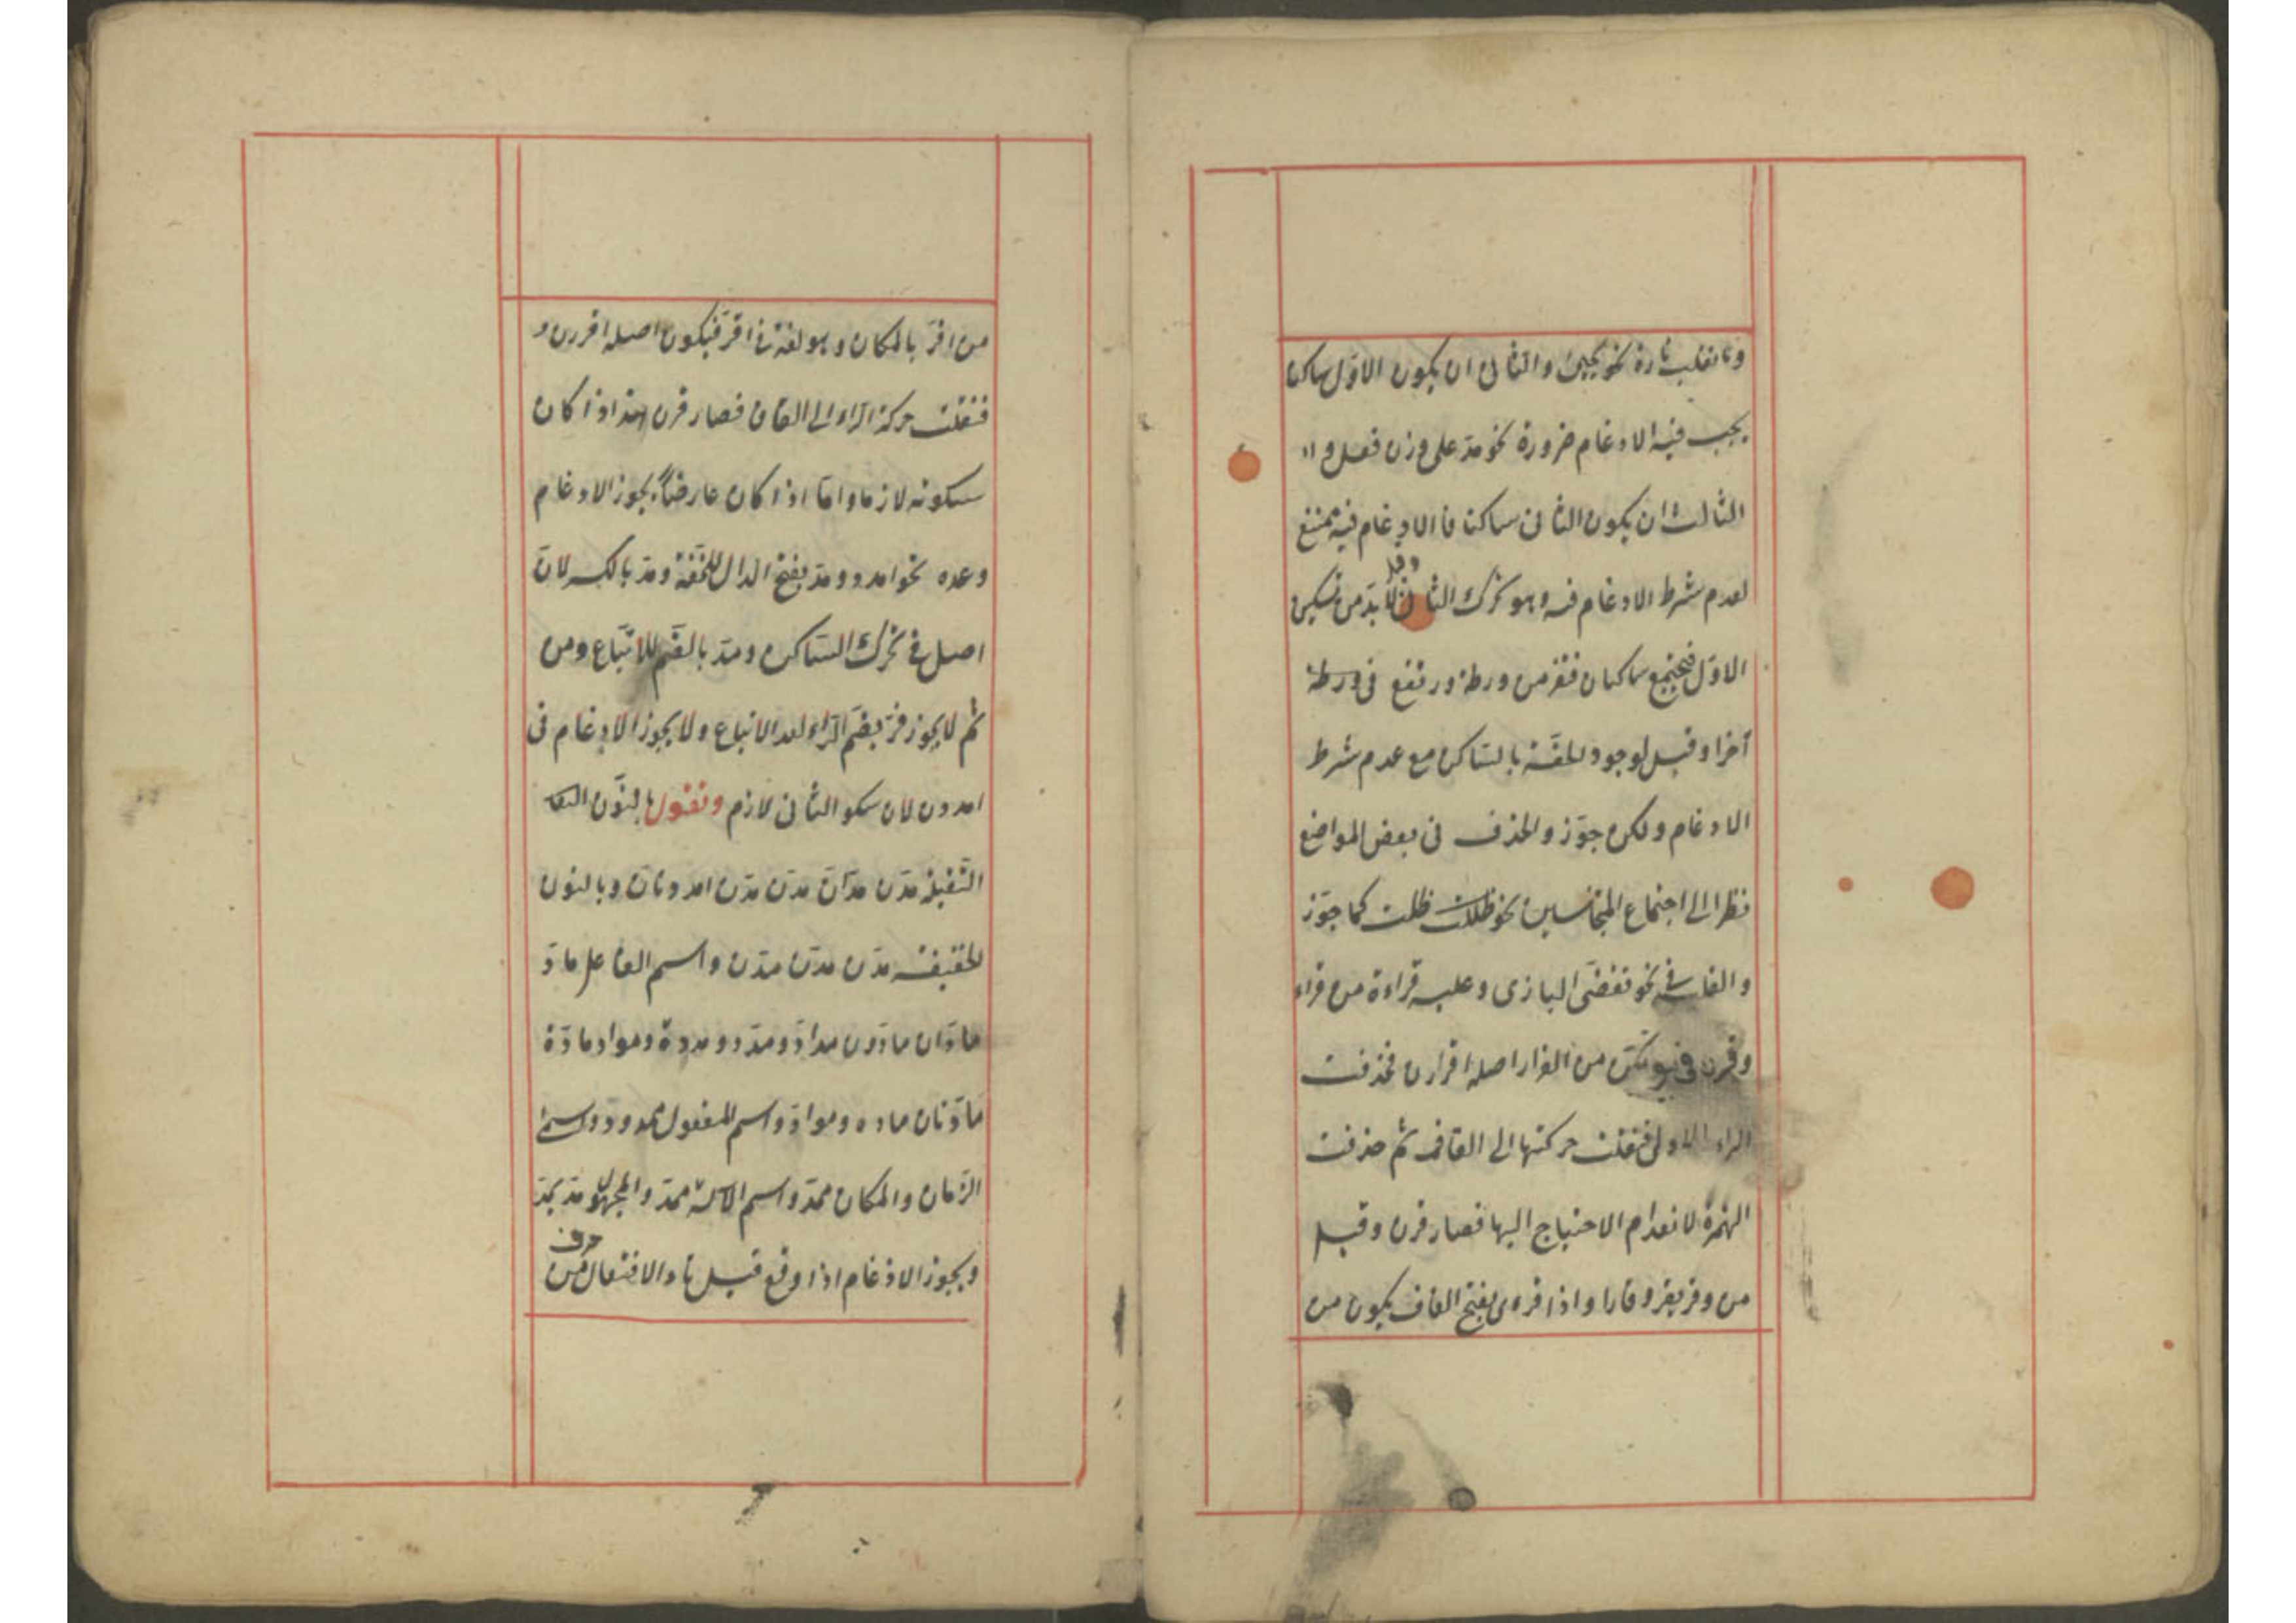 وتانقلب تارة نحو يحيى والثانى ان يكون الاول ساكنا
يجب فيه الادغام ضرورة نحو مدّ على وزن فعل و
الثالث ان يكون الثانى ساكنا فالادغام فيه ممتنع
لعدم شرط الادغام فيه وهو تحرك الثانى وقيل لا بدّ من تسكين
الاوّل فيجتمع ساكنان فتفر من ورطة وتقع فى ورطة
آخرا وقيل لوجود الخفّة بالسّاكن مع عدم شرط
الادغام ولكن جوّز والحذف فى بعض المواضع
نظرا الى اجتماع المتجانسين نحو ظللت ظلت كما جوّز
والقلب فى نحو تقضّى البازى وعليه قراءة من قراء
وقرن فى بيوتكن من القرار اصله اقررن فحذفت
الراء الاولى فنقلت حركتها الى القاف ثم حذفت
الهمزة لانعدام الاحتياج اليها فصار قرن وقيل
من وقر يقر وقارا واذا قرء ى بفتح القاف يكون من
من اقرّ بالمكان وهو لغة فى اقرّ فيكون اصله اقررن و
فنقلت حركة الرّاء الى القاف فصار قرن هذا اذا كان
سكونه لازما وامّا اذا كان عارضاً يجوز الادغام
وعده نحو امدد ومدّ بفتح الدال للخفّة ومدّ بالكسر لانّ
اصل فى تحرك السّاكن ومدّ بالضّم للاتّباع ومن
ثم لا يجوز فرّ بضم الرّاء لعد الاتباع ولا يجوز الادغام فى
امددن لان سكو الثانى لازم وتقول بالنّون التّا
الثّقيلة مدّن مدّانّ مدّن مدّن امددنانّ وبالنون
الخفيفة مدّن مدّن مدّن واسم الفاعل مادّ
مادّان مادّون مدادّ ومدّد ومددة وموادّ مادّة
مادّتان ماده وموادّ واسم المفعول ممدود واسم ا
الزّمان والمكان ممدّ واسم الآلة ممدّ والمجهول مدّ يمدّ
ويجوز الادغام اذا وقع قبل تاء الافتعال حرف من